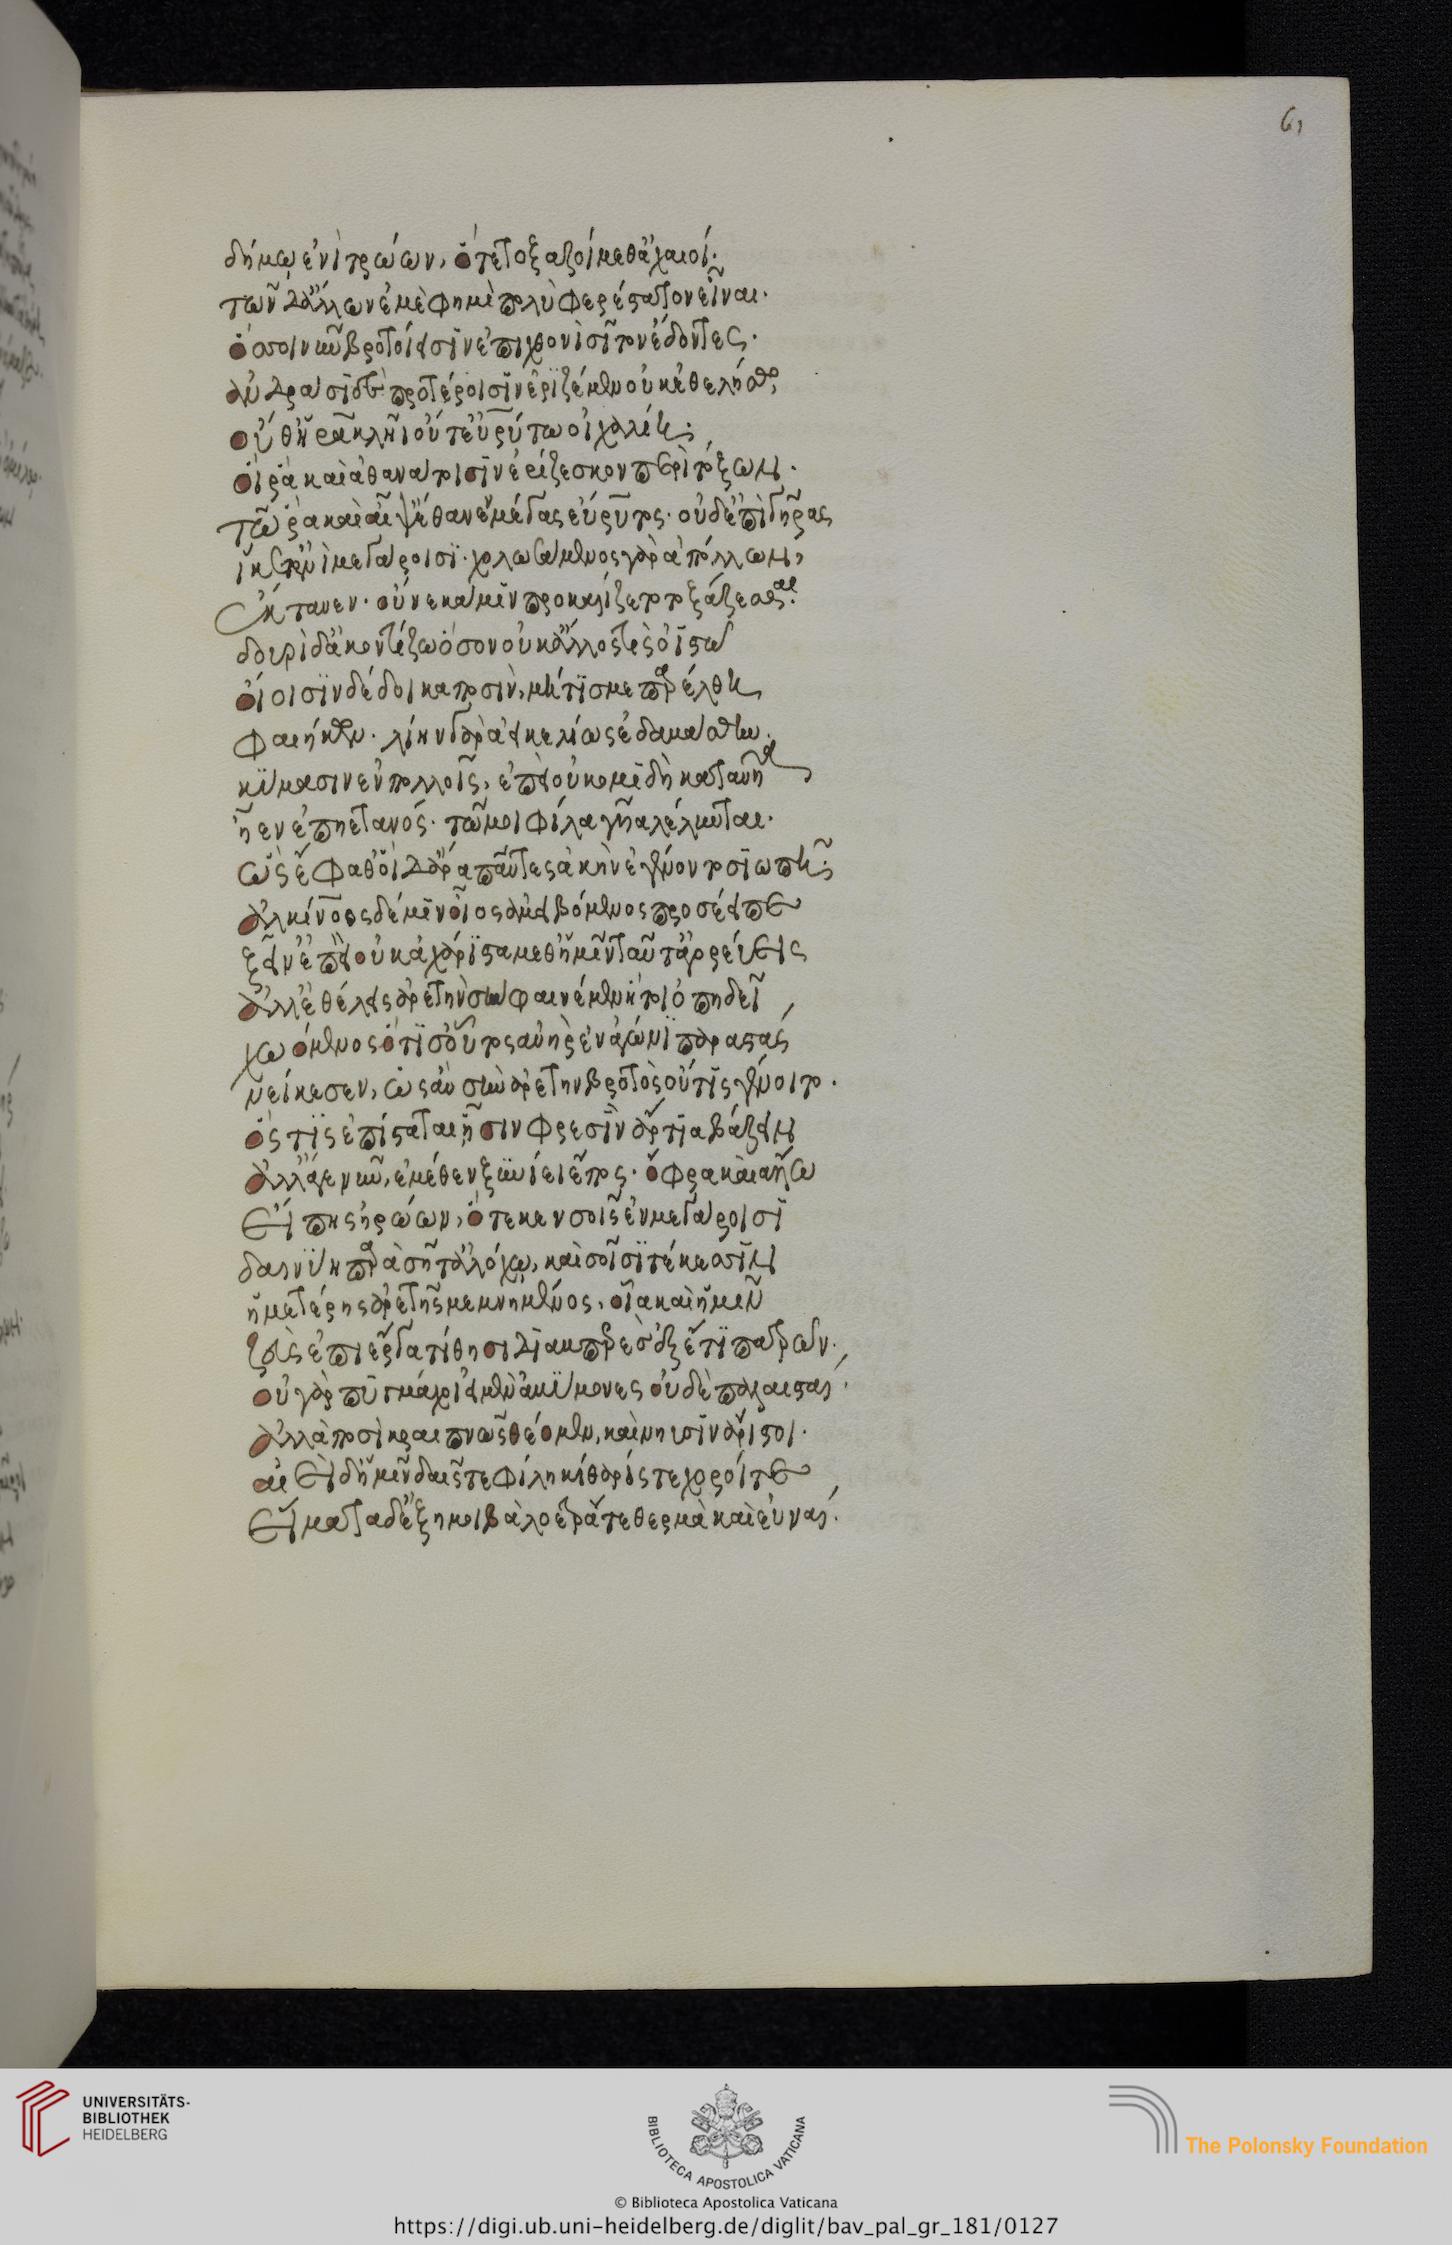 61
δήμω ἐνὶ τρώων, ὅτε τοξαζοίμεθ' ἀχαιοί.
τῶν δ' ἄλλων ἐμὲ φημὶ πολὺ φερέστατον εἶναι.
ὅσσοι νῦν βροτοί εἰσιν ἐπὶ χθονὶ σῖτον ἔδοντες.
ἀνδράσι δὲ προτέροισιν ἐριζέμεν οὐκ ἐθελήσω,
οὔθ' ἡρακλῆι οὔτ' εὐρύτω οἰχαλιῆι,
οἵ ῥα καὶ ἀθανάτοισιν ἐρίζεσκον περὶ τόξων.
τῶ ῥα καὶ αἶψ' ἔθανε μέγας εὔρυτος. οὐδ' ἐπὶ γῆρας
ἵκετ' ἐνὶ μεγάροισι. χολωσάμενος γὰρ ἀπόλλων,
ἔκτανεν. οὕνεκά μιν προκαλίζετο τοξάζεσθαι.
δουρὶ δ' ἀκοντίζω ὅσον οὐκ ἄλλός τις ὀϊστῶ
οἴοισιν δέδοικα ποσὶν, μή τίς με παρέλθη
φαιήκων. λίην γὰρ ἀεικελίως ἐδαμάσθην.
κύμασιν ἐν πολλοῖς, ἐπεὶ οὐ κομιδὴ κατὰ νῆα
ἦεν ἐπηετανός. τῶ μοι φίλα γυῖα λέλυνται.
ὣς ἔφαθ' οἱ δ' ἄρα πάντες ἀκὴν ἐγένοντο σιωπῆ.
ἀλκίνοος δέ μιν οἶος ἀμειβόμενος προσέειπε
ξεῖν' ἐπεὶ οὐκ ἀχάριστα μεθ' ἡμῖν ταῦτ' ἀγορεύεις
ἀλλ' ἐθέλεις ἀρετὴν σὴν φαινέμεν ἥ τοι ὀπηδεῖ
χωόμενος ὅτι σ' οὗτος ἀνὴρ ἐν ἀγῶνι παραστάς
νείκεσεν, ὡς ἂν σὴν ἀρετὴν βροτὸς οὔτις ὄνοιτο.
ὅς τις ἐπίσταται ἧσιν φρεσὶν ἄρτια βάζειν
ἀλλ' ἄγε νῦν, ἐμέθεν ξυνίει ἔπος. ὄφρα καὶ ἄλλω
εἴπης ἡρώων, ὅτε κεν σοῖς ἐν μεγάροισι
δαινύη παρὰ σῆ τ' ἀλόχω, καὶ σοῖσι τέκεσσιν
ἡμετέρης ἀρετῆς μεμνημένος, οἷα καὶ ἡμῖν
ζεὺς ἐπὶ ἔργα τίθησι διαμπερὲς ἐξ ἔτι πατρῶν.
οὐ γὰρ πυγμάχοι εἰμὲν ἀμύμονες οὐδὲ παλαισταί.
ἀλλὰ ποσὶ κραιπνῶς θέομεν, καὶ νηυσὶν ἄριστοι.
αἰεὶ δ' ἡμῖν δαίς τε φίλη κίθαρίς τε χοροί τε
εἵματά δ' ἐξημοιβὰ λοετρά τε θερμὰ καὶ εὐναί.
UNIVERSITÄTS-
BIBLIOTHEK
HEIDELBERG
BIBLIOTECA APOSTOLICA VATICANA
The Polonsky Foundation
© Biblioteca Apostolica Vaticana
https://digi.ub.uni-heidelberg.de/diglit/bav_pal_gr_181/0127